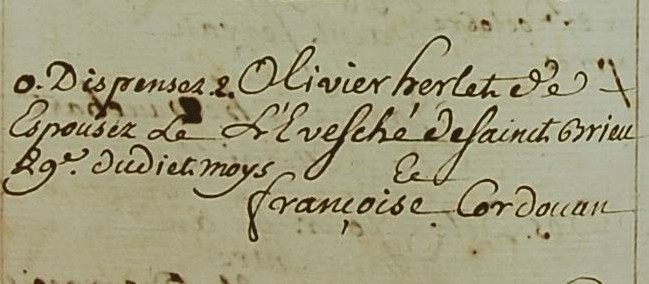 0. Dispensez. 2. Olivier herlet. de
Espousez Le L'Evesché de Sainct. Brieu
29e. dudict. moys Et
françoise Cordouan